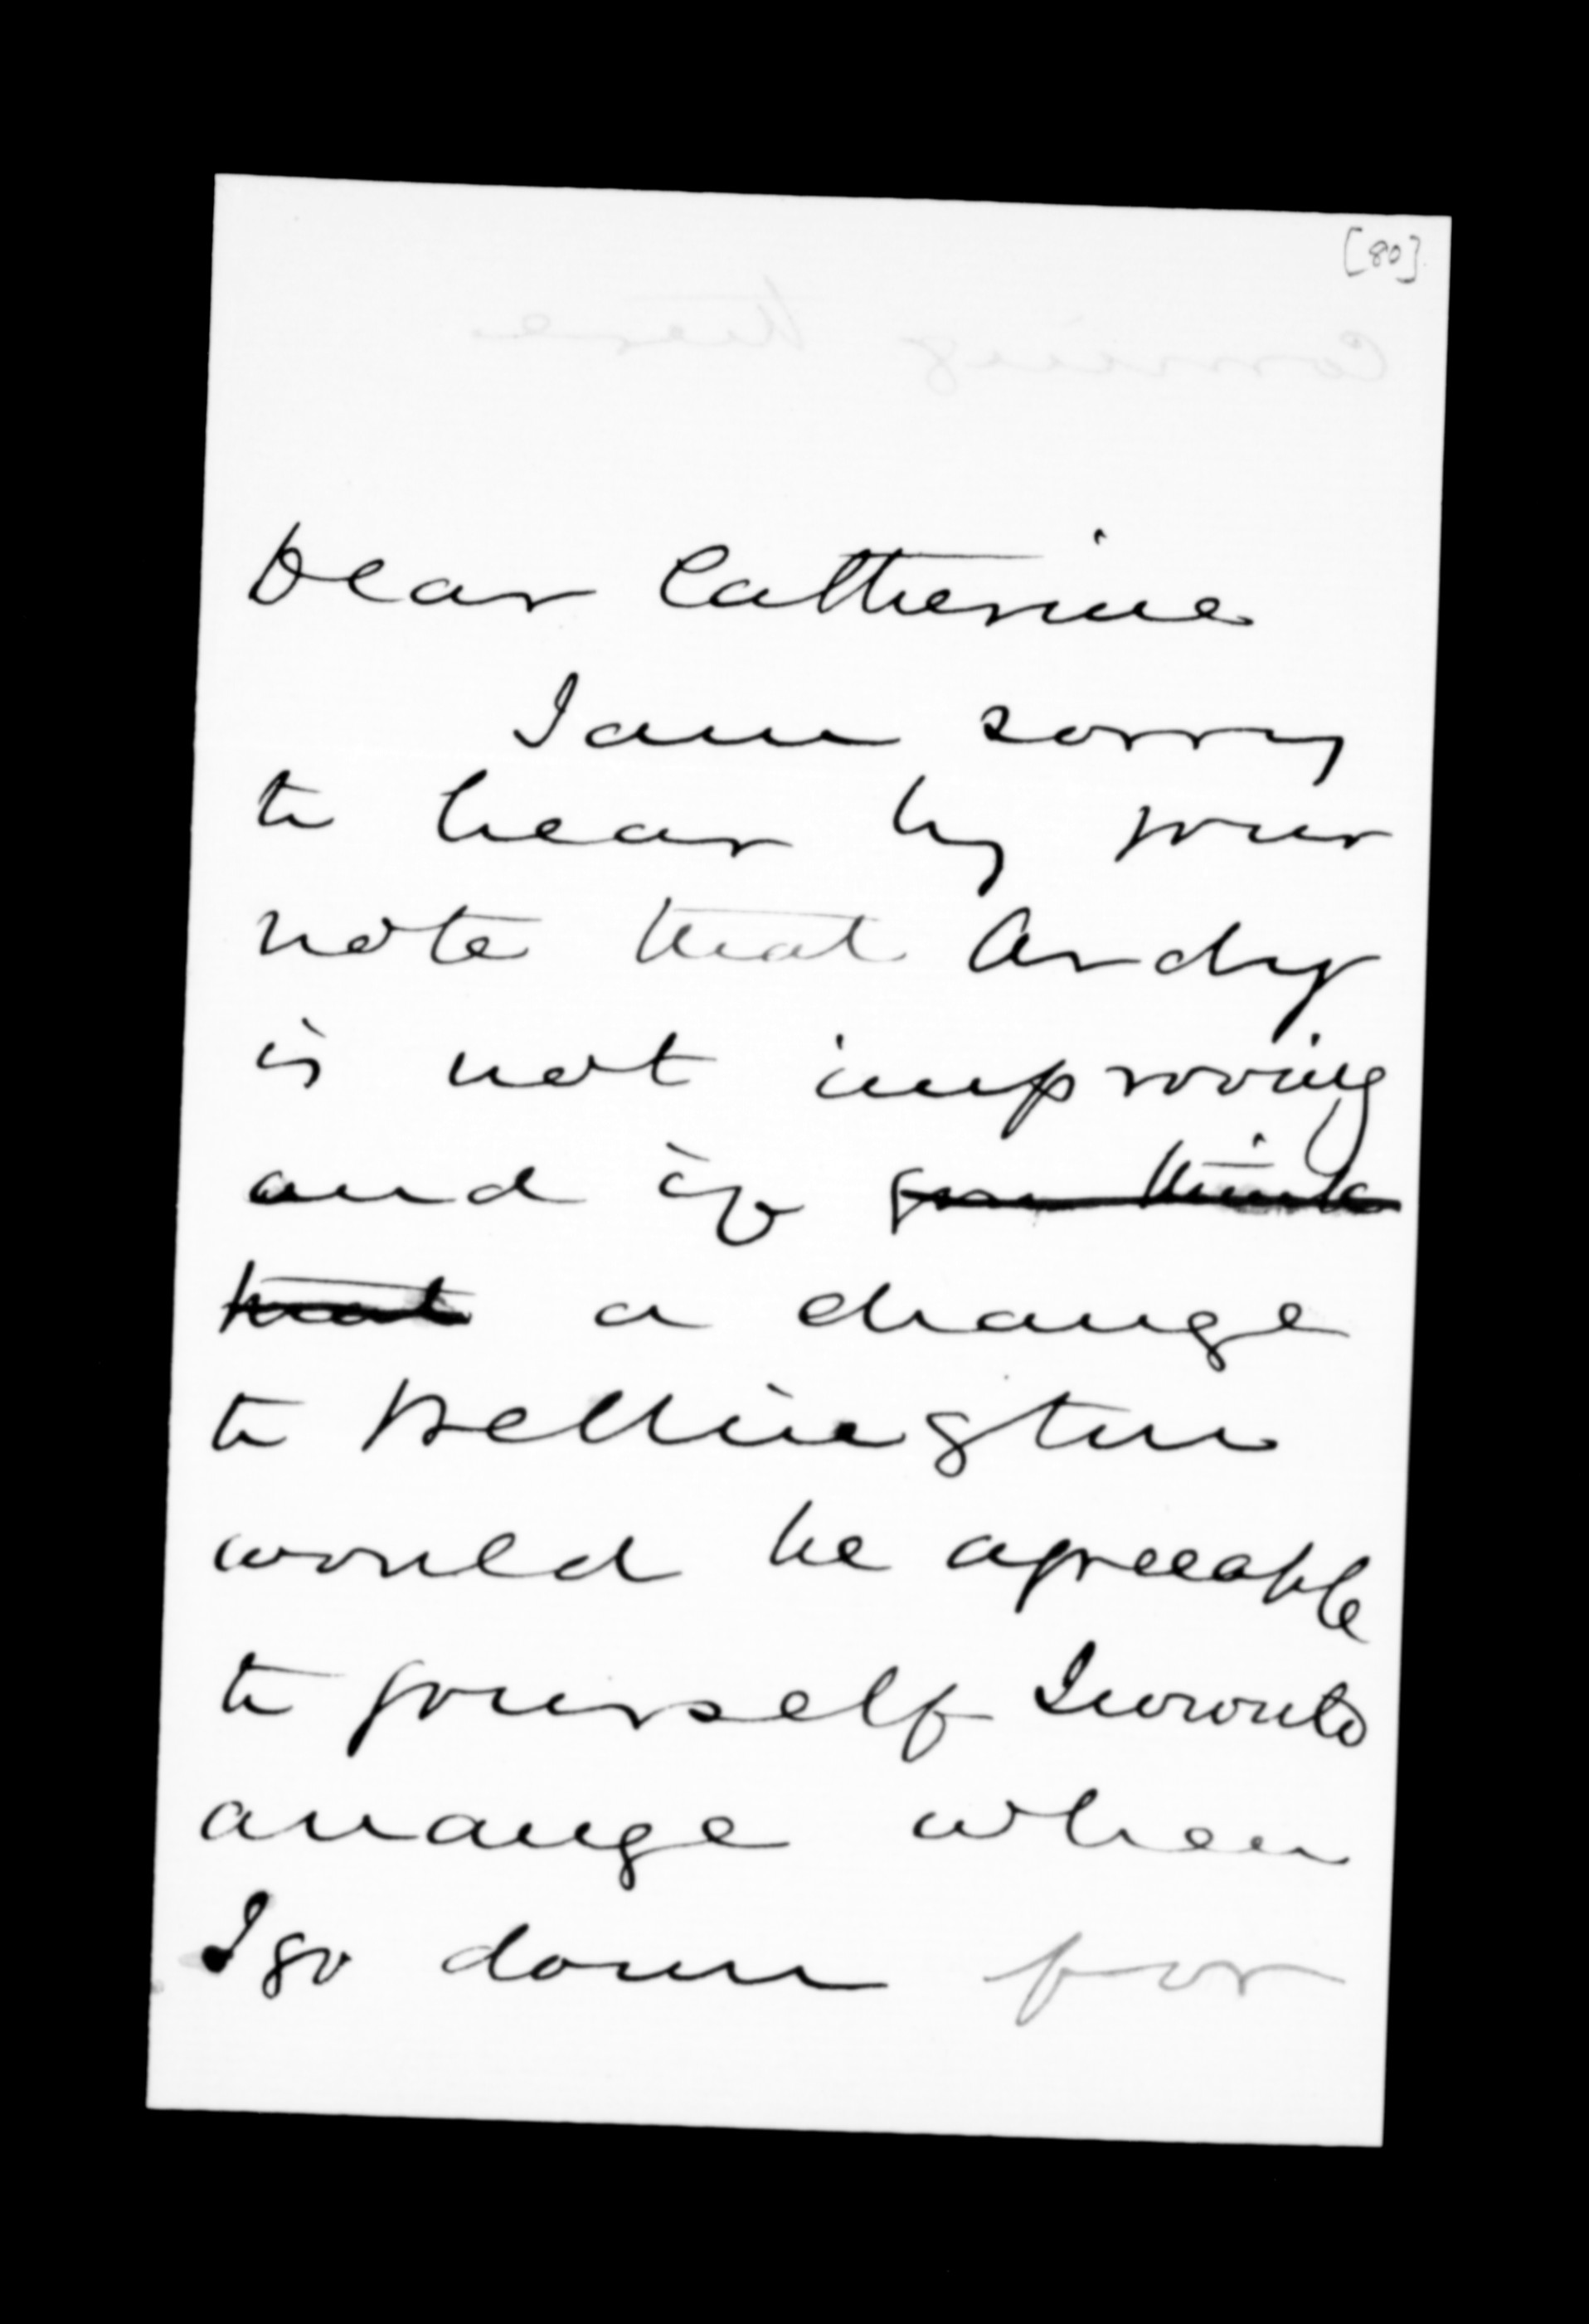 [80]
Dear Catherine
I am sorry
to hear by your
note that Andy
is not improving
and if you think
that a change
to Wellington
would be agreeable
to yourself I would
arrange when
I go down for